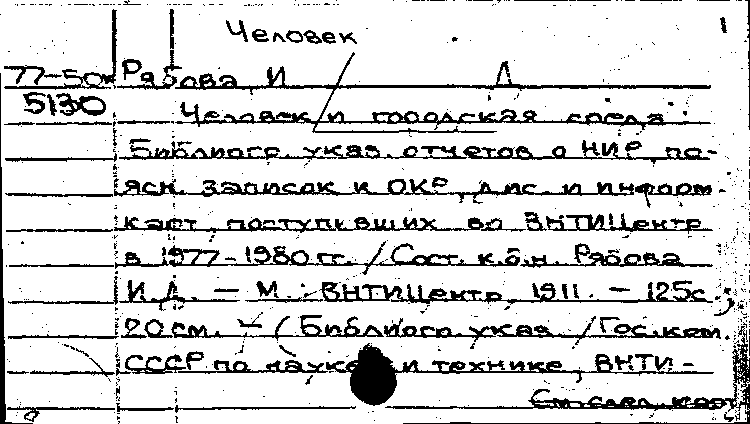 1
Человек
77-50к Рябова И Д
5130 Человек и городская среда:
Библиогр. указ. отчетов о НИР, по-
ясн. записок к ОКР, дис. и информ.
карт, поступивших во ВНТИЦентр
в 1977-1980 гг. / Сост. к.б.н. Рябова
И.Д. — М.: ВНТИЦентр, 1911. — 125с.;
20 см. — (Библиогр. указ. / Гос. ком.
СССР по науке и технике, ВНТИ-
См. след. карт.